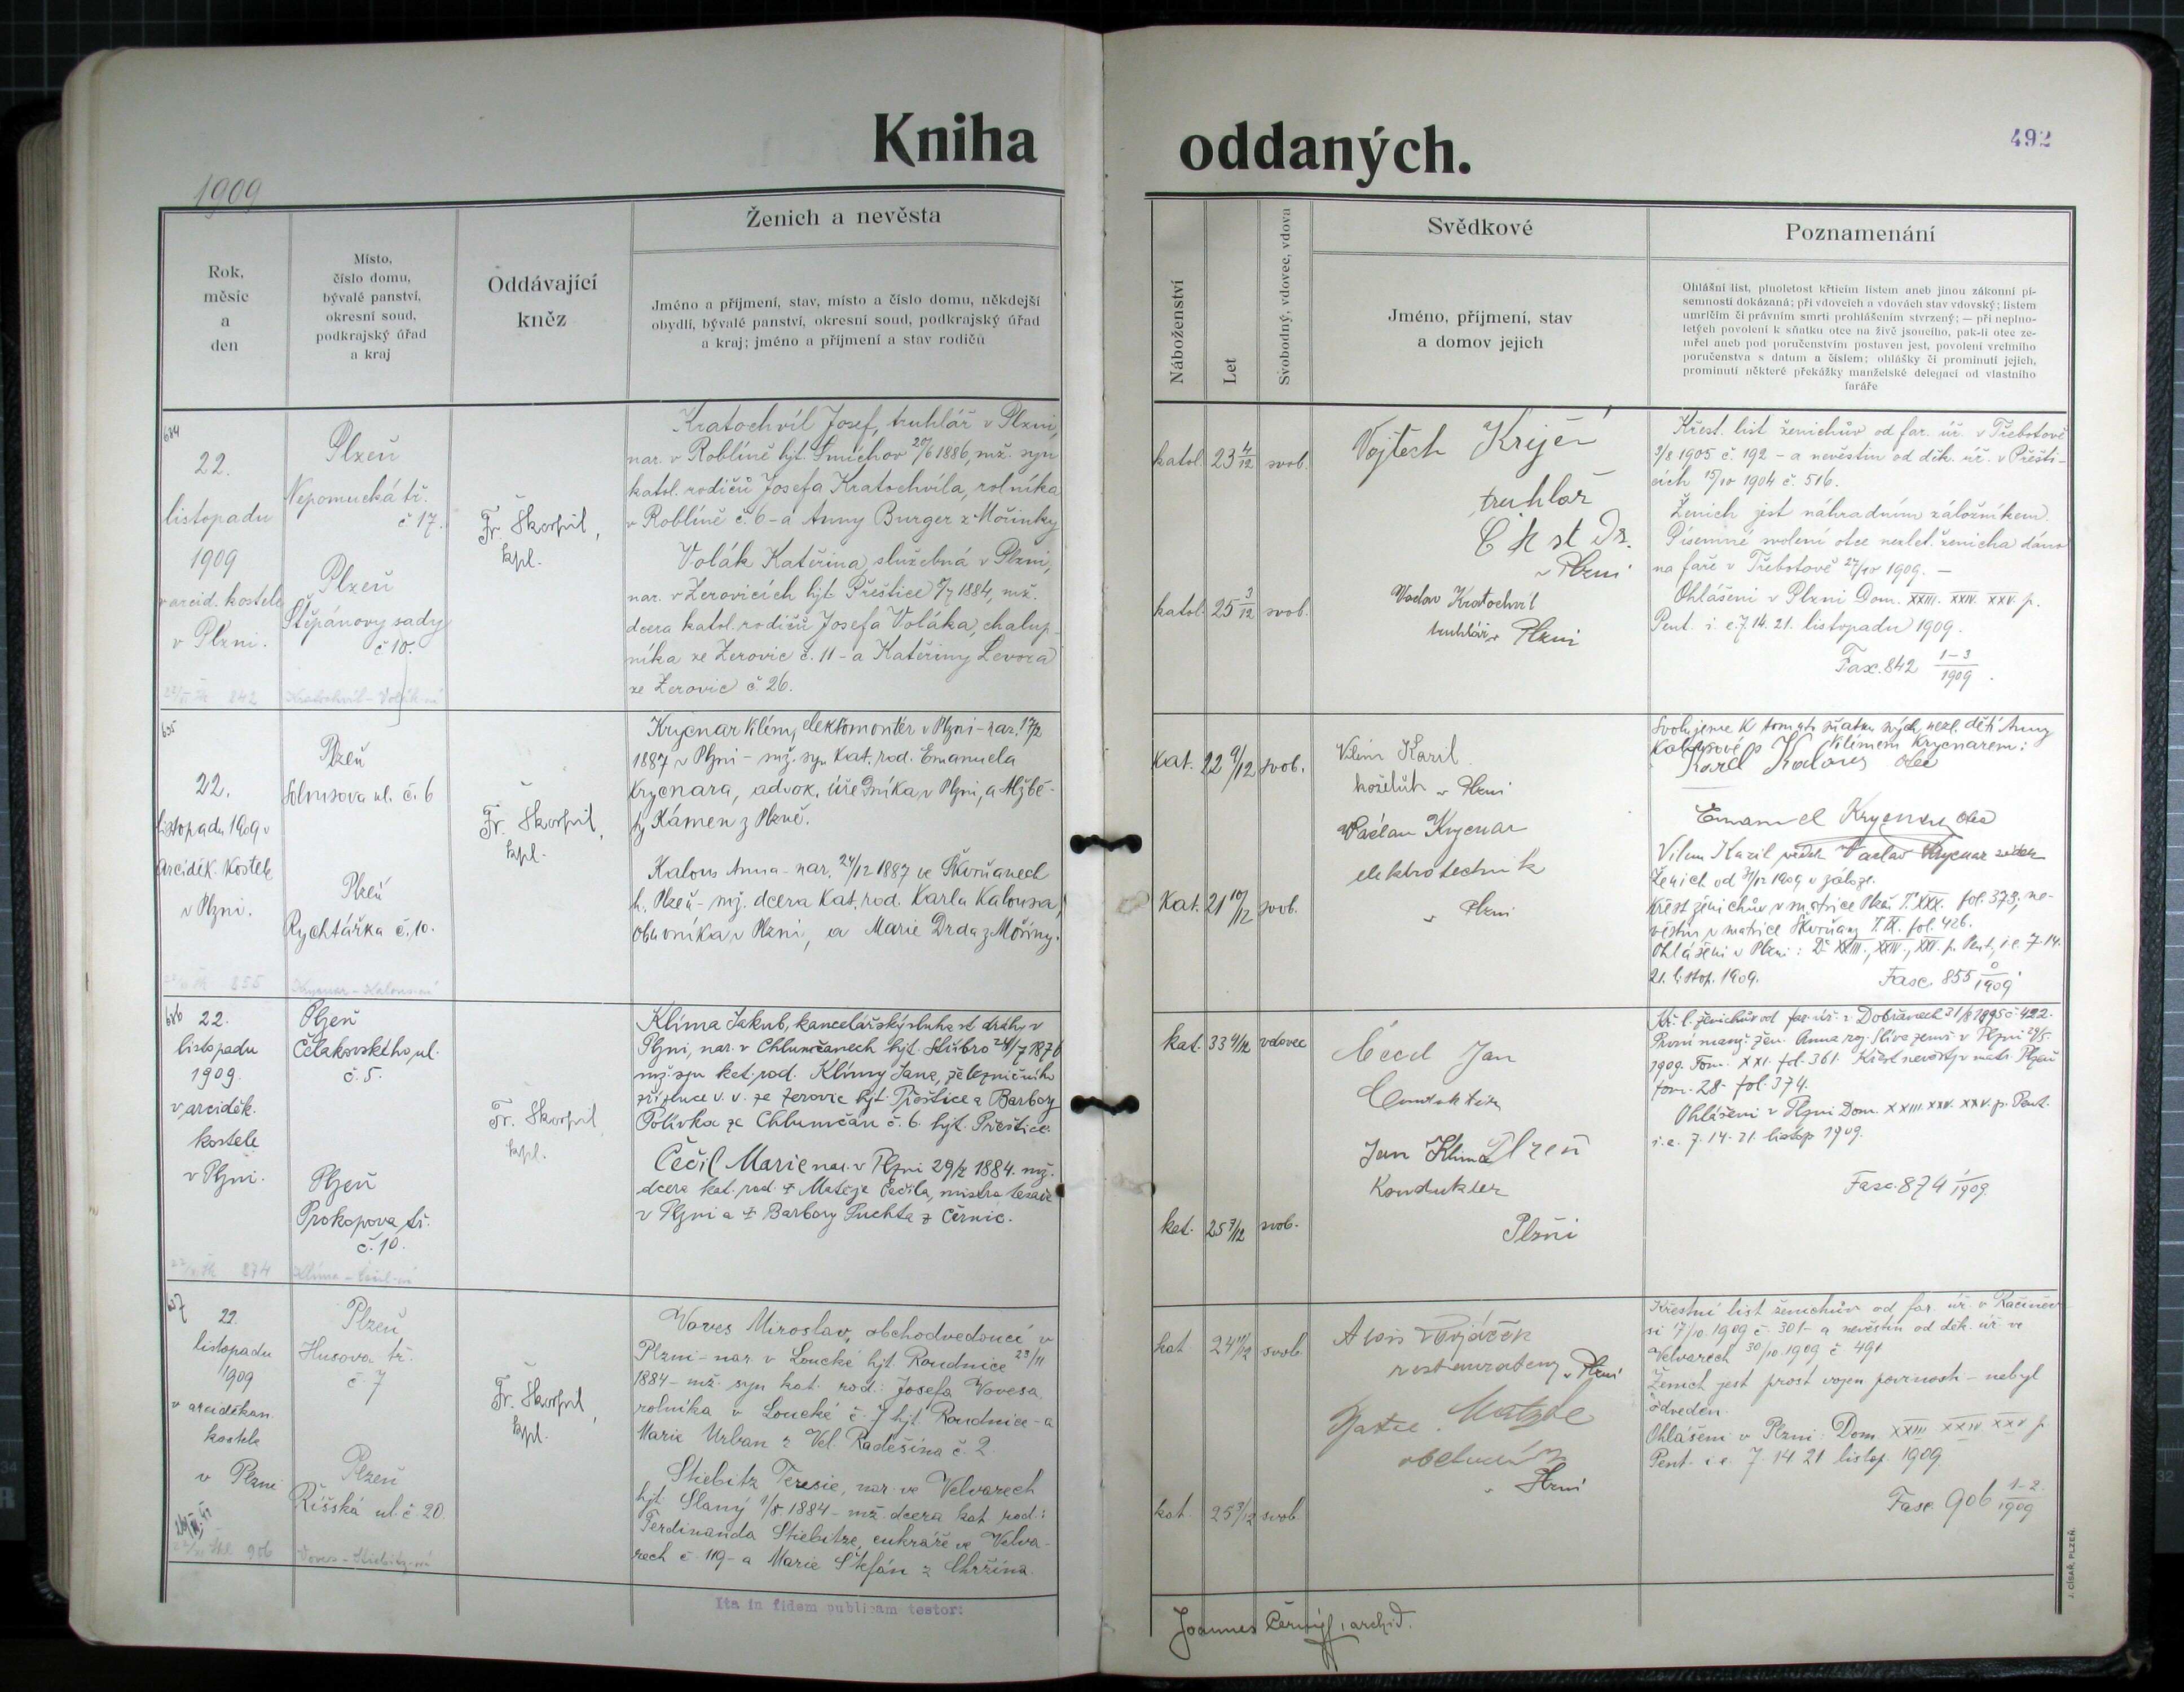 Kniha oddaných.
492
1909
Rok,
měsíc
a
den
Místo,
číslo domu,
bývalé panství,
okresní soud,
podkrajský úřad
a kraj
Oddávající
kněz
Ženich a nevěsta
Jméno a příjmení, stav, místo a číslo domu, někdejší
obydlí, bývalé panství, okresní soud, podkrajský úřad
a kraj; jméno a příjmení a stav rodičů
Náboženství
Let
Svobodný, vdovec, vdova
Svědkové
Jméno, příjmení, stav
a domov jejich
Poznamenání
Ohlášní list, plnoletost křticím listem aneb jinou zákonní pí-
semností dokázaná; při vdovcích a vdovách stav vdovský; listem
umrlčím či právním smrti prohlášením stvrzený; — při neplno-
letých povolení k sňatku otce na živě jsoucího, pak-li otec ze-
mřel aneb pod poručenstvím postaven jest, povolení vrchního
poručenstva s datum a číslem; ohlášky či prominutí jejich,
prominutí některé překážky manželské delegací od vlastního
faráře
684
22.
listopadu
1909
v arcid. kostele
v Plzni.
842
Plzeň
Nepomucká tř.
č 17.
Plzeň
Štěpánovy sady
č 10.
Kratochvíl - Volák-ová
Fr. Škorpil,
kpl.
Kratochvíl Josef, truhlář v Plzni,
nar. v Roblíně hjt. Smíchov 20/6 1886, mž. syn
katol. rodičů Josefa Kratochvíla, rolníka
v Roblíně č. 6 - a Anny Burger z Mořinky
Volák Kateřina, služebná v Plzni,
nar. v Žerovicích hjt. Přeštice 1884, mž.
dcera katol. rodičů Josefa Voláka, chalup-
níka ze Žerovic č. 11 - a Kateřiny Levora
ze Žerovic č. 26.
katol. 23 4/12 svob.
katol. 25 3/12 svob.
Vojtěch Krejčí
truhlář
C K st Dr.
v Plzni
Vaclav Kratochvíl
truhlář v Plzni
Křest. list ženichův od far. úř. v Třebotově
9/8 1905 č. 192 - a nevěstin od děk. úř. v Přešti-
cích 15/10 1904 č. 516.
Ženich jest náhradním záložníkem.
Písemné svolení otce nezlet. ženicha dáno
na faře v Třebotově 27/10 1909. —
Ohlášeni v Plzni Dom. XXIII. XXIV. XXV. p.
Pent. i. e. 7. 14. 21. listopadu 1909.
Fasc. 842 1-3/1909.
685
22.
listopadu 1909 v
arciděk. kostele
v Plzni.
855
Plzeň
Solnusova ul. č. 6
Plzeň
Rychtářka č. 10.
Krycnar - Kalous-ová
Fr. Škorpil,
kpl.
Krycnar Vilém, elektromontér v Plzni - nar. 17/2
1887 v Plzni - mž. syn kat. rod. Emanuela
Krycnara, advok. úředníka v Plzni, a Alžbě-
ty Kámen z Plzně.
Kalous Anna - nar. 24/12 1887 ve Skvrňanech
h. Plzeň - mž. dcera kat. rod. Karla Kalousa,
obuvníka v Plzni, a Marie Drda z Mořiny.
Kat. 22 9/12 svob.
Kat. 21 10/12 svob.
Vilém Karil
koželuh v Plzni
Václav Krycnar
elektrotechnik
v Plzni
Svolujeme k tomuto sňatku svých nezl. dětí Anny
Kalousové s Vilémem Krycnarem:
Karel Kalous otec
Emanuel Krycnar otec
Vilem Karil svědek Vaclav Krycnar svědek
Ženich od 31/12 1909 v záloze.
Křest ženichův v matrice Plzeň T. XXX. fol. 373, ne-
věstin v matrice Skvrňany T. IX. fol. 426.
Ohlášeni v Plzni: D. XXIII., XXIV., XXV. p. Pent., i. e. 7. 14.
21. listop. 1909. Fasc. 855 0/1909.
686
22.
listopadu
1909.
v arciděk.
kostele
v Plzni.
874
Plzeň
Čelakovského ul.
č. 5.
Plzeň
Prokopova tř.
č. 10.
Klíma - Čečil-ová
Fr. Škorpil,
kpl.
Klíma Jakub, kancelářský sluha st. dráhy v
Plzni, nar. v Chlumčanech hjt. Stříbro 24/7 1876
mž. syn kat. rod. Klímy Jana, železničního
zřízence v. v. ze Žerovic hjt. Přeštice a Barbory
Polívka ze Chlumčan č. 6. hjt. Přeštice.
Čečil Marie nar. v Plzni 1884. mž.
dcera kat. rod. + Matěje Čečila, mistra tesaře
v Plzni a + Barbory Puchta z Černic.
kat. 33 4/12 vdovec
kat. 25 9/12 svob.
Čečil Jan
Konduktér
Plzeň
Jan Klima
Kondukter
Plzni
Kř. l. ženichův od far. úř. v Dobřanech 1895 č. 422.
První manž. žen. Anna roz. Slíva zemř. v Plzni 29/5
1909. Tom. XXI. fol. 361. Křest nevěsty v matr. Plzeň
tom. 28. fol. 374.
Ohlášeni v Plzni Dom. XXIII. XXIV. XXV. p. Pent.
i. e. 7. 14. 21. listop 1909.
Fasc. 874 1/1909.
687
22.
listopadu
1909
v arciděkan.
kostele
v Plzni
906
Plzeň
Husova tř.
č. 7
Plzeň
Říšská ul. č 20.
Voves - Stiebitz-ová
Fr. Škorpil,
kpl.
Voves Miroslav, obchodvedoucí v
Plzni - nar. v Loucké hjt. Roudnice 23/11
1884 - mž. syn kat. rod.: Josefa Vovesa,
rolníka v Loucké č. 7 hjt. Roudnice - a
Marie Urban z Vel. Radešína č. 2
Stiebitz Terezie, nar. ve Velvarech
hjt. Slaný 1/8 1884 - mž. dcera kat. rod.:
Ferdinanda Stiebitze, cukráře ve Velva-
rech č. 119 - a Marie Štefán z Chržína.
kat. 24 11/12 svob
kat. 25 3/12 svob.
Alois Vojáček
restauratery v Plzni
Matzke
obchodník
v Plzni
Křestní list ženichův od far. úř. v Račiněv-
si 17/10. 1909 č. 301 - a nevěstin od děk. úř. ve
Velvarech 30/10. 1909 č 491
Ženich jest prost vojen. povinosti - nebyl
odveden.
Ohlášeni v Plzni: Dom. XXIII XXIV XXV p
Pent. i. e. 7. 14 21 listop. 1909
Fasc. 906 1-2/1909
Ita in fidem publicam testor:
Joannes Černý, archid.
J. CÍSAŘ, PLZEŇ.